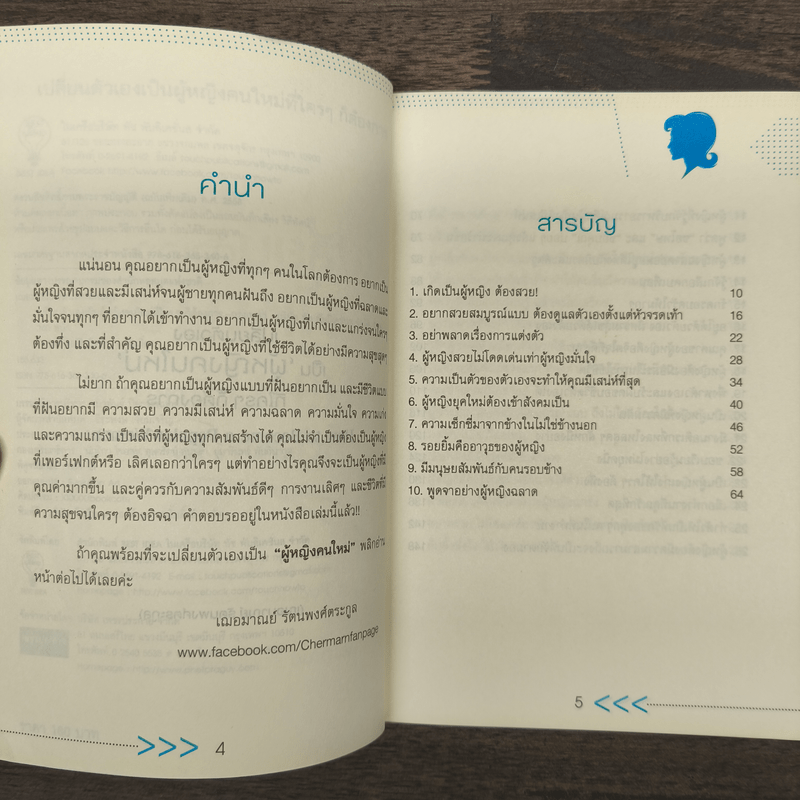 คำนำ
แน่นอน คุณอยากเป็นผู้หญิงที่ทุกๆ คนในโลกต้องการ อยากเป็น
ผู้หญิงที่สวยและมีเสน่ห์จนผู้ชายทุกคนฝันถึง อยากเป็นผู้หญิงที่ฉลาดและ
มั่นใจจนทุกๆ ที่อยากได้เข้าทำงาน อยากเป็นผู้หญิงที่เก่งและแกร่งจนใครๆ
ต้องทึ่ง และที่สำคัญ คุณอยากเป็นผู้หญิงที่ใช้ชีวิตได้อย่างมีความสุขสุดๆ
ไม่ยาก ถ้าคุณอยากเป็นผู้หญิงแบบที่ฝันอยากเป็น และมีชีวิตแบบ
ที่ฝันอยากมี ความสวย ความมีเสน่ห์ ความฉลาด ความมั่นใจ ความเก่ง
และความแกร่ง เป็นสิ่งที่ผู้หญิงทุกคนสร้างได้ คุณไม่จำเป็นต้องเป็นผู้หญิง
ที่เพอร์เฟกต์หรือ เลิศเลอกว่าใครๆ แต่ทำอย่างไรคุณจึงจะเป็นผู้หญิงที่มี
คุณค่ามากขึ้น และคู่ควรกับความสัมพันธ์ดีๆ การงานเลิศๆ และชีวิตที่มี
ความสุขจนใครๆ ต้องอิจฉา คำตอบรออยู่ในหนังสือเล่มนี้แล้ว!!
ถ้าคุณพร้อมที่จะเปลี่ยนตัวเองเป็น “ผู้หญิงคนใหม่” พลิกอ่าน
หน้าต่อไปได้เลยค่ะ
เฌอมาณย์ รัตนพงศ์ตระกูล
www.facebook.com/Chermarnfanpage
>>> 4
สารบัญ
1. เกิดเป็นผู้หญิง ต้องสวย! 10
2. อยากสวยสมบูรณ์แบบ ต้องดูแลตัวเองตั้งแต่หัวจรดเท้า 16
3. อย่าพลาดเรื่องการแต่งตัว 22
4. ผู้หญิงสวยไม่โดดเด่นเท่าผู้หญิงมั่นใจ 28
5. ความเป็นตัวของตัวเองจะทำให้คุณมีเสน่ห์ที่สุด 34
6. ผู้หญิงยุคใหม่ต้องเข้าสังคมเป็น 40
7. ความเซ็กซี่มาจากข้างในไม่ใช่ข้างนอก 46
8. รอยยิ้มคืออาวุธของผู้หญิง 52
9. มีมนุษยสัมพันธ์กับคนรอบข้าง 58
10. พูดจาอย่างผู้หญิงฉลาด 64
5 <<<